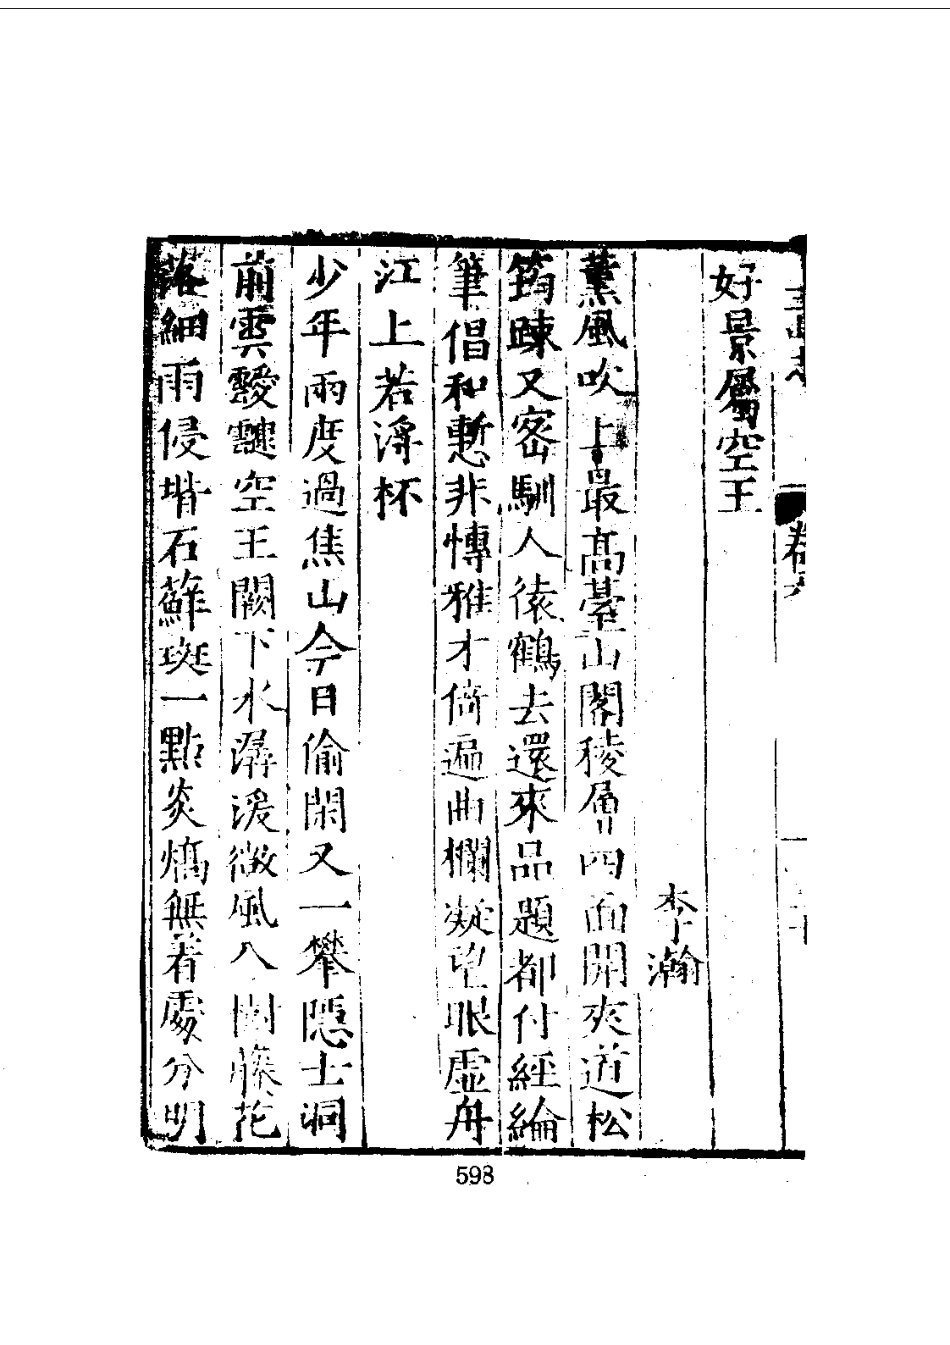 好景屬空王
李瀚
薰風吹上最高臺山閣稜層四面開夾道松
筠踈又密馴人猿鶴去還來品題都付經綸
筆倡和慙非慱雅才倚遍曲欄凝望眼虛舟
江上若浮杯
少年兩度過焦山今日偷閑又一攀隱士洞
前雲靉靆空王闕下水潺湲微風入樹藤花
落細雨侵堦石蘚斑一點炎熇無着處分明
卷六
598